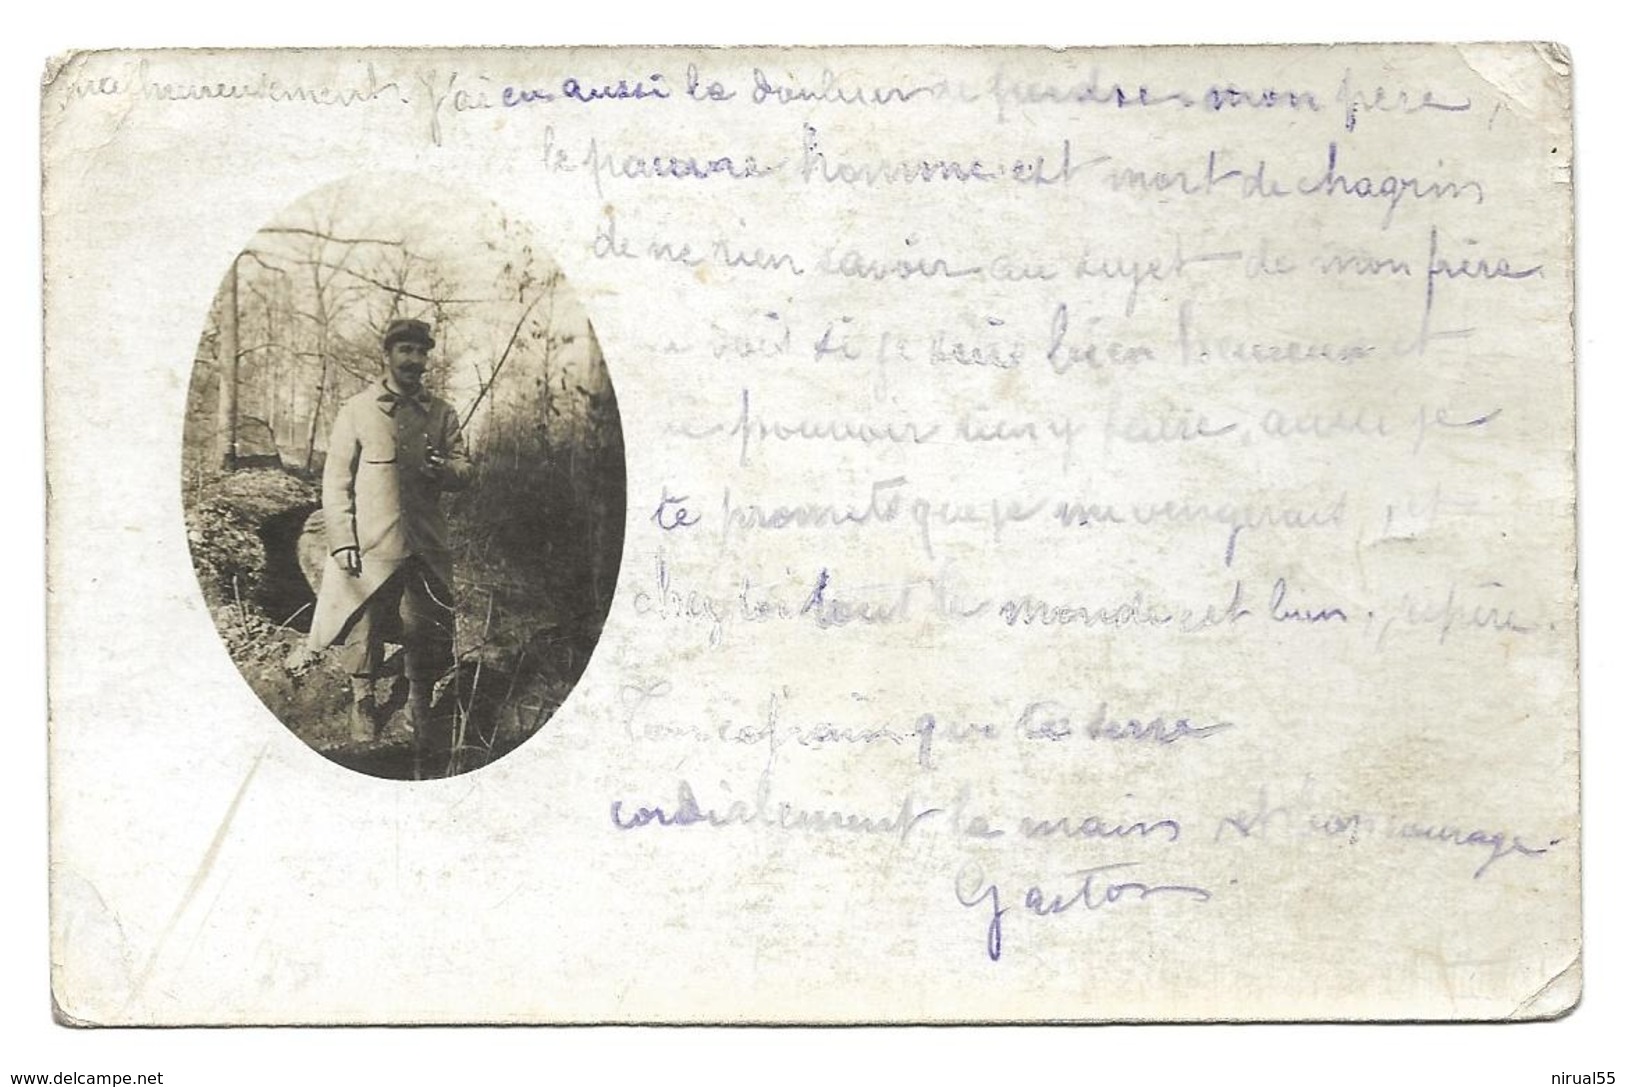 malheureusement. J'ai eu aussi la douleur de perdre mon père,
le pauvre homme est mort de chagrin
de ne rien savoir au sujet de mon frère
vois si je suis bien heureux et
pouvoir rien y faire, aussi je
te promets que je me vengerais, et
chez toi tout le monde est bien.
Ton cofrain qui te serre
cordialement la main et bon courage
Gaston
www.delcampe.net
nirual55